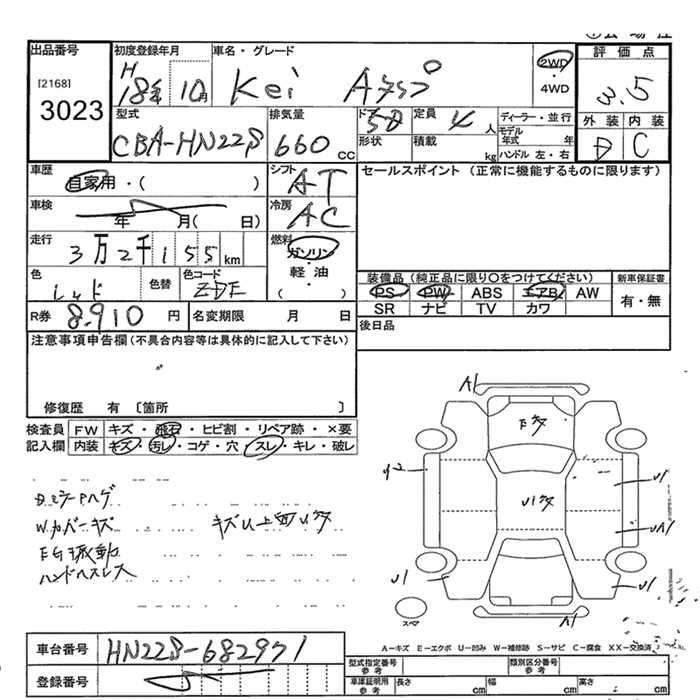 出品番号
[2168]
3023
初度登録年月
H 18年 10月
車名・グレード
Kei
2WD
・
4WD
評価点
3.5
外装 内装
D C
型式
CBA-HN22S
排気量
660 CC
ドア
5D
定員
4 人
形状
積載
kg
ディーラー・並行
モデル年式 年
ハンドル 左・右
車歴
自家用・( )
シフト
AT
セールスポイント (正常に機能するものに限ります)
車検
年 月( 日)
冷房
AC
走行
3万2千155km
燃料
ガソリン
・
軽油
・
( )
色
レッド
色替
色コード
ZDE
装備品(純正品に限り〇をつけてください)
新車保証書
PS PW ABS エアB AW
有・無
SR ナビ TV カワ
R券
8.910 円
名変期限 月 日
後日品
注意事項申告欄(不具合内容等は具体的に記入して下さい)
修復歴 有 〔箇所 〕
検査員記入欄
FW キズ・飛石・ヒビ割・リペア跡・×要
内装 キズ・汚レ・コゲ・穴・スレ・キレ・破レ
DミラーPハゲ
W.カバーキズ
キズU上面U多
EG振動
ハンドルスレス
A1
E多
U1多
U1
UA1
U1
U1
A1
スペア
A-キズ E-エクボ U-凹み W-補修跡 S-サビ C-腐食 XX-交換済
車台番号
HN22S-682971
登録番号
型式指定番号
参考
類別区分番号
参考
車庫証明用
参考
長さ cm
幅 cm
高さ cm